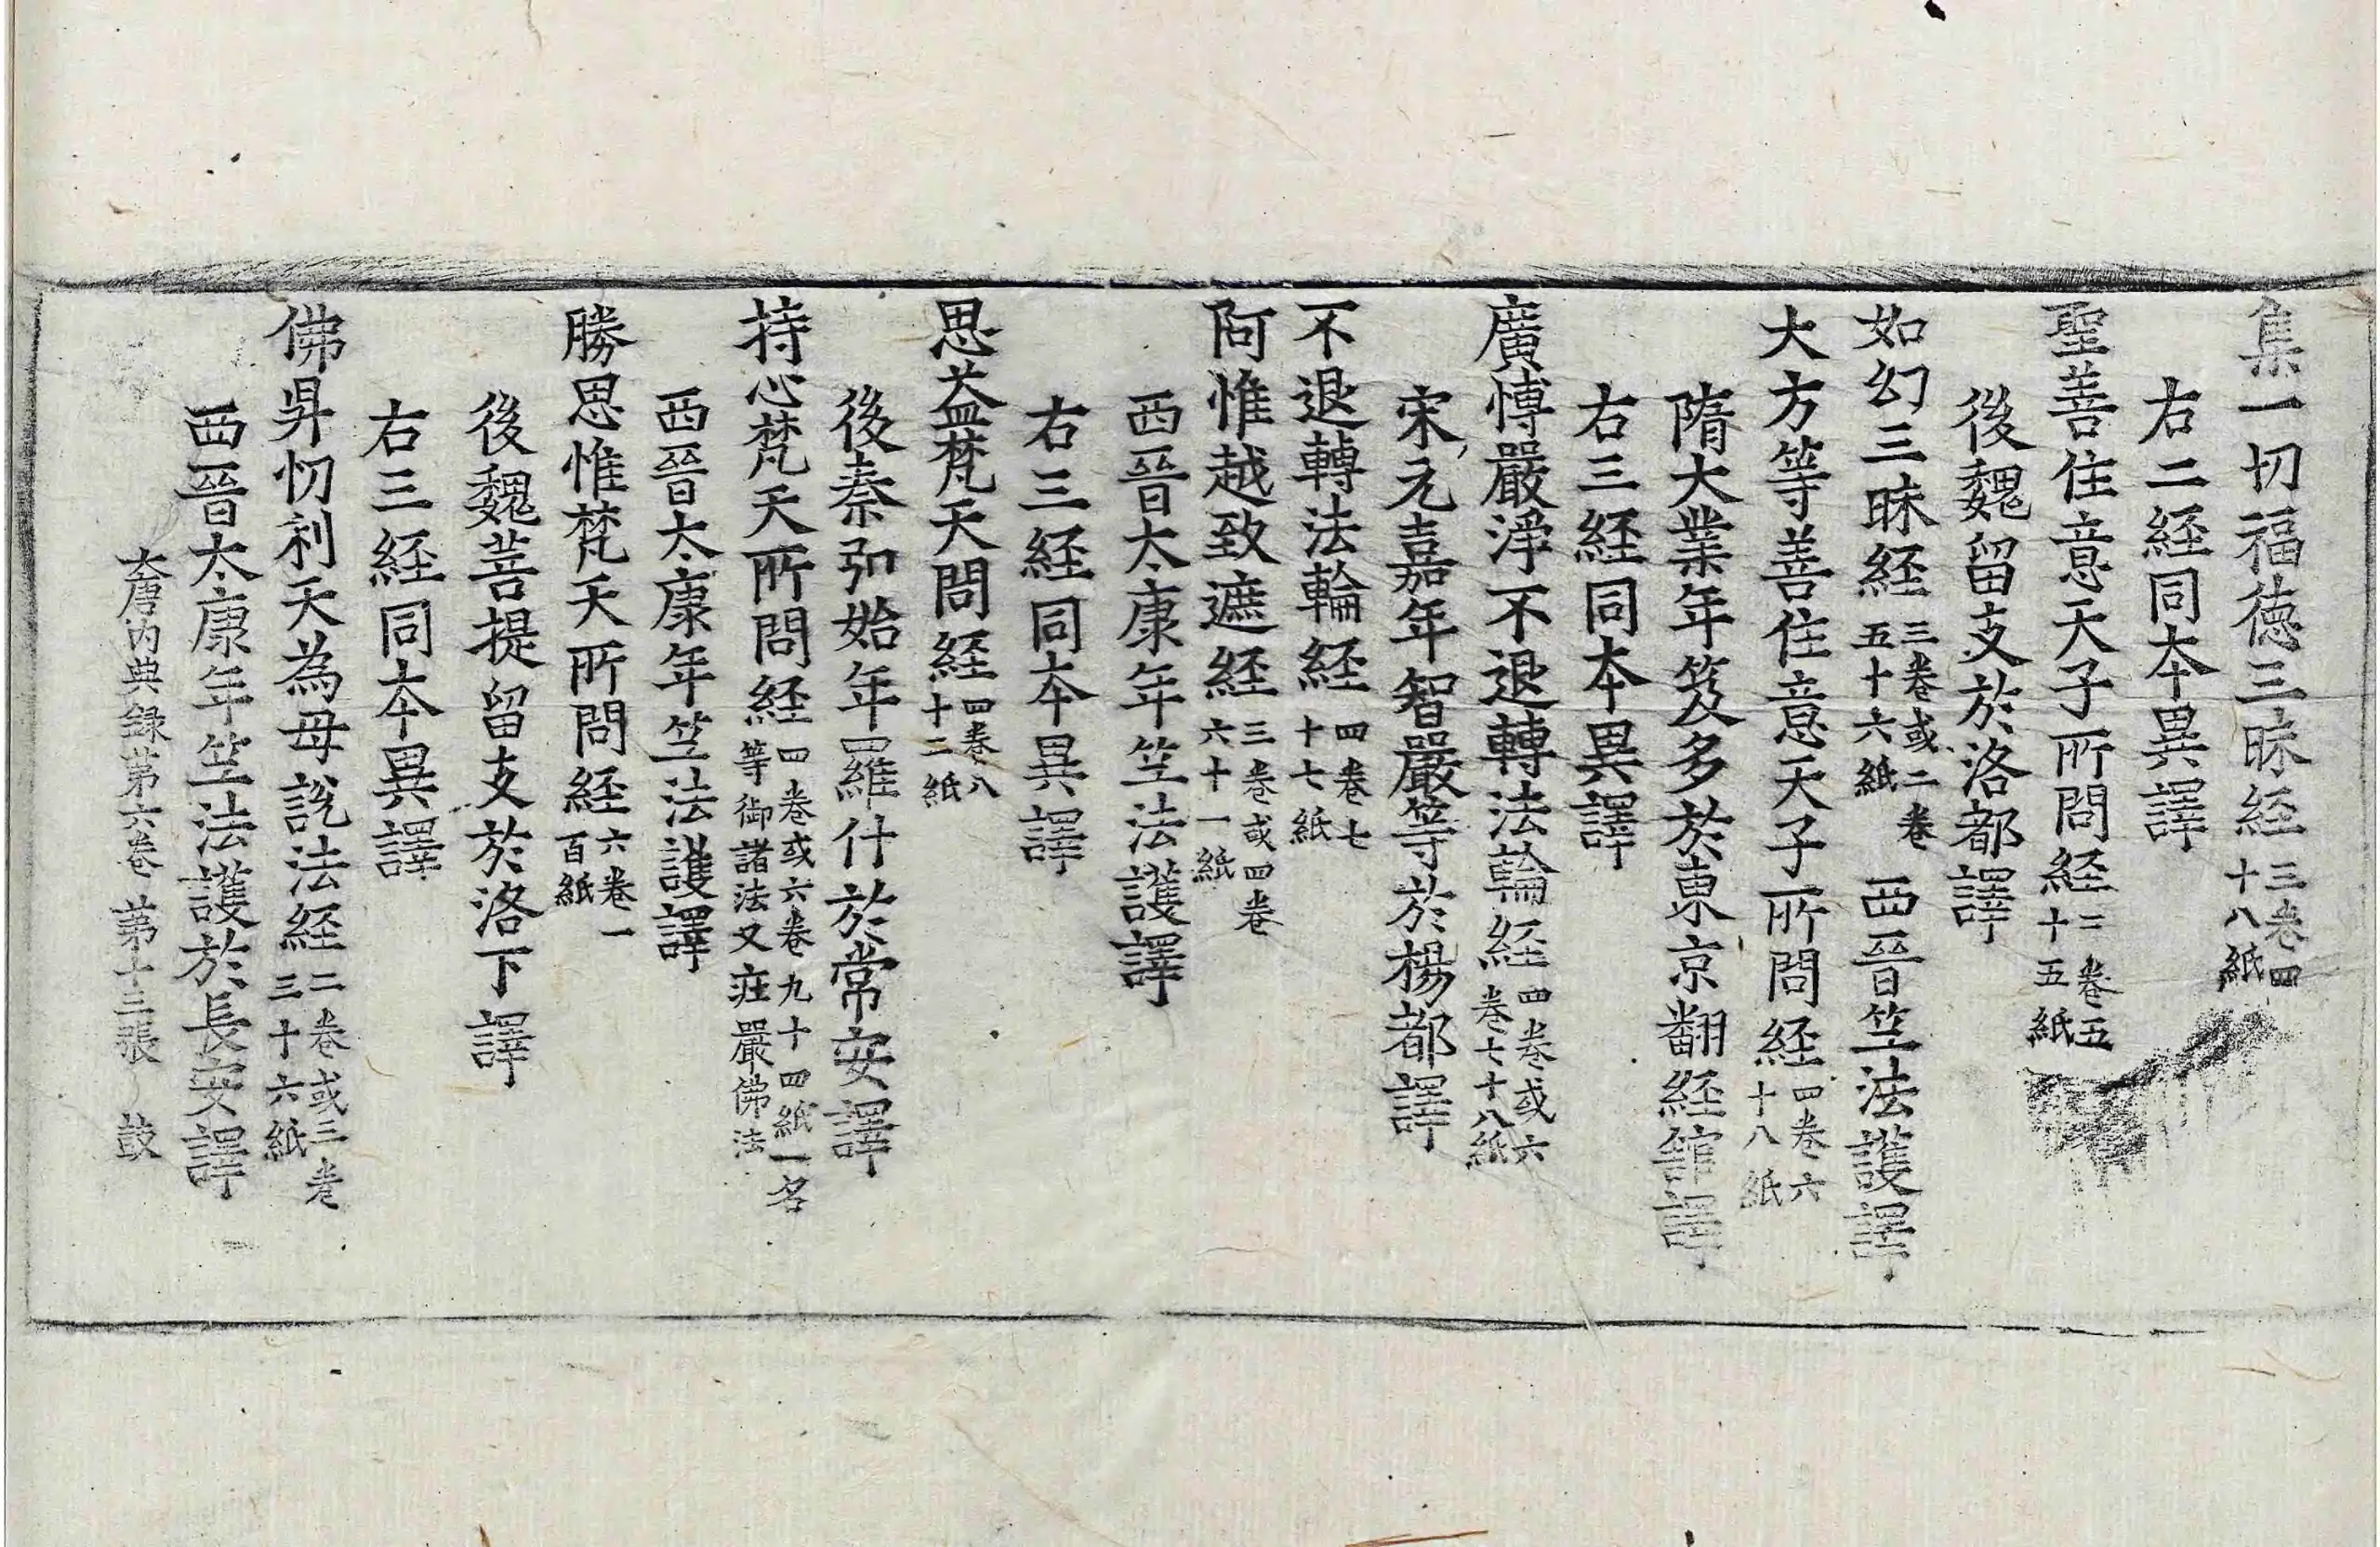 集一切福徳三昧経三卷四十八紙
右二経同本異譯
聖善住意天子所問経二卷五十五紙
後魏留支於洛都譯
如幻三昧経三卷或二卷五十六紙 西晉竺法護譯
大方等善住意天子所問経四卷六十八紙
隋大業年笈多於東京翻経舘譯
右三経同本異譯
廣愽嚴淨不退轉法輪経四卷或六卷七十八紙
宋元嘉年智嚴等於楊都譯
不退轉法輪経四卷七十七紙
阿惟越致遮経三卷或四卷六十一紙
西晉太康年竺法護譯
右三経同本異譯
思益梵天問経四卷八十二紙
後秦弘始年羅什於常安譯
持心梵天所問経四卷或六卷九十四紙一名等御諸法又莊嚴佛法
西晉太康年竺法護譯
勝思惟梵天所問経六卷一百紙
後魏菩提留支於洛下譯
右三経同本異譯
佛昇忉利天為母說法経二卷或三卷三十六紙
西晉太康年竺法護於長安譯
大唐内典録第六卷 第十三張 鼓